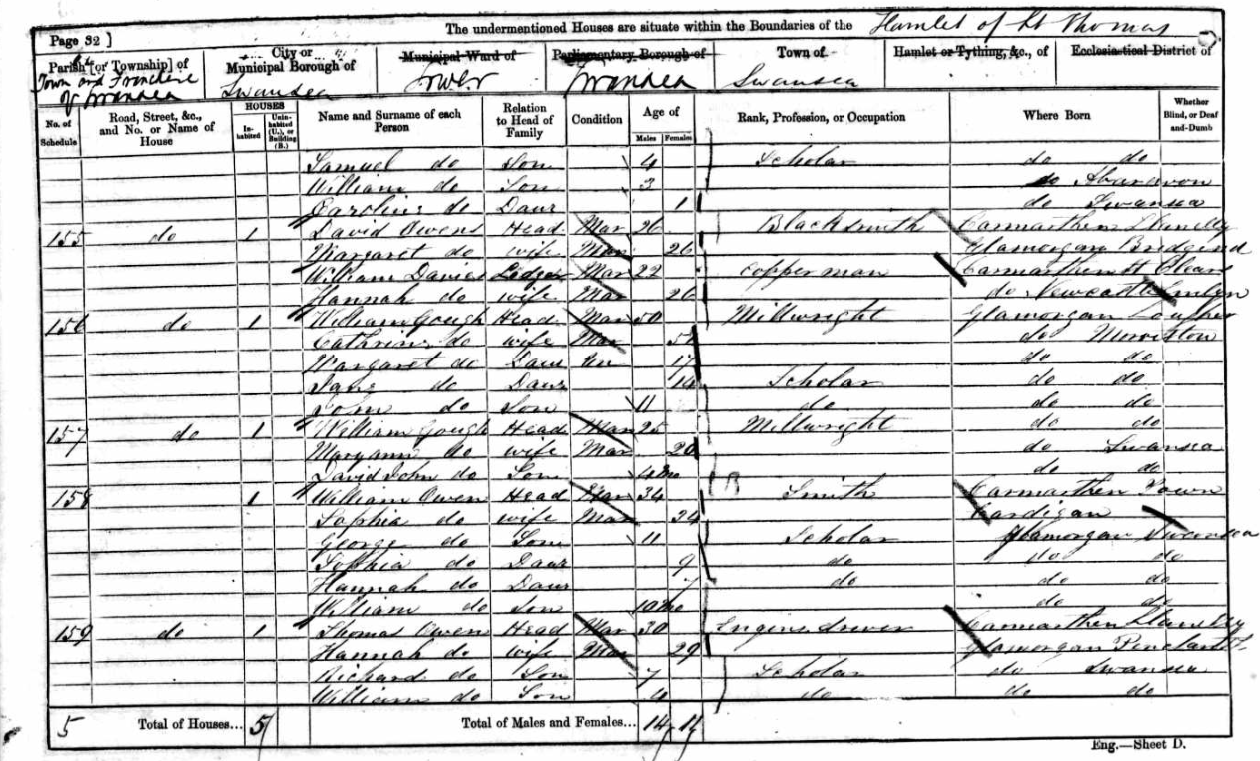 The undermentioned Houses are situate within the Boundaries of the Hamlet of St Thomas
Page 32 ]
Parish [or Township] of City or Municipal Borough of Municipal Ward of Parliamentary Borough of Town of Hamlet or Tything, &c., of Ecclesiastical District of
Town and Franchise of Swansea Swansea Swansea Swansea
No. of Schedule Road, Street, &c., and No. or Name of House HOUSES Inhabited Uninhabited (U.), or Building (B.) Name and Surname of each Person Relation to Head of Family Condition Age of Males Females Rank, Profession, or Occupation Where Born Whether Blind, or Deaf and-Dumb
Samuel do Son 4 Scholar do do
William do Son 3 do Abaravon
Caroline do Daur 1 do Swansea
155 do 1 David Owens Head Mar 26 Blacksmith Carmarthen Llanelly
Margaret do wife Mar 26 Glamorgan Bridgend
William Davies Lodger Mar 22 Copperman Carmarthen St Clears
Hannah do wife Mar 26 do Newcastle Emlyn
156 do 1 William Gough Head Mar 50 Millwright Glamorgan Loughor
Cathrine do wife Mar do Morriston
Margaret do Daur Un 17 do do
Jane do Daur 14 Scholar do do
John do Son 11 do do do
157 do 1 William Gough Head Mar 25 Millwright do do
Maryann do wife Mar 20 do Swansea
David John do Son 4 Mo do do
158 1 William Owen Head Mar 34 Smith Carmarthen Town
Sophia do wife Mar 34 Cardigan
George do Son 11 Scholar Glamorgan Swansea
Sophia do Daur 9 do do do
Hannah do Daur 7 do do do
William do Son 10 Mo do do
159 do 1 Thomas Owen Head Mar 30 Engine driver Carmarthen Llanelly
Hannah do wife Mar 29 Glamorgan
Richard do Son 7 Scholar do Swansea
William do Son 4 do do do
5 Total of Houses... 5 Total of Males and Females... 14 11
Eng.—Sheet D.